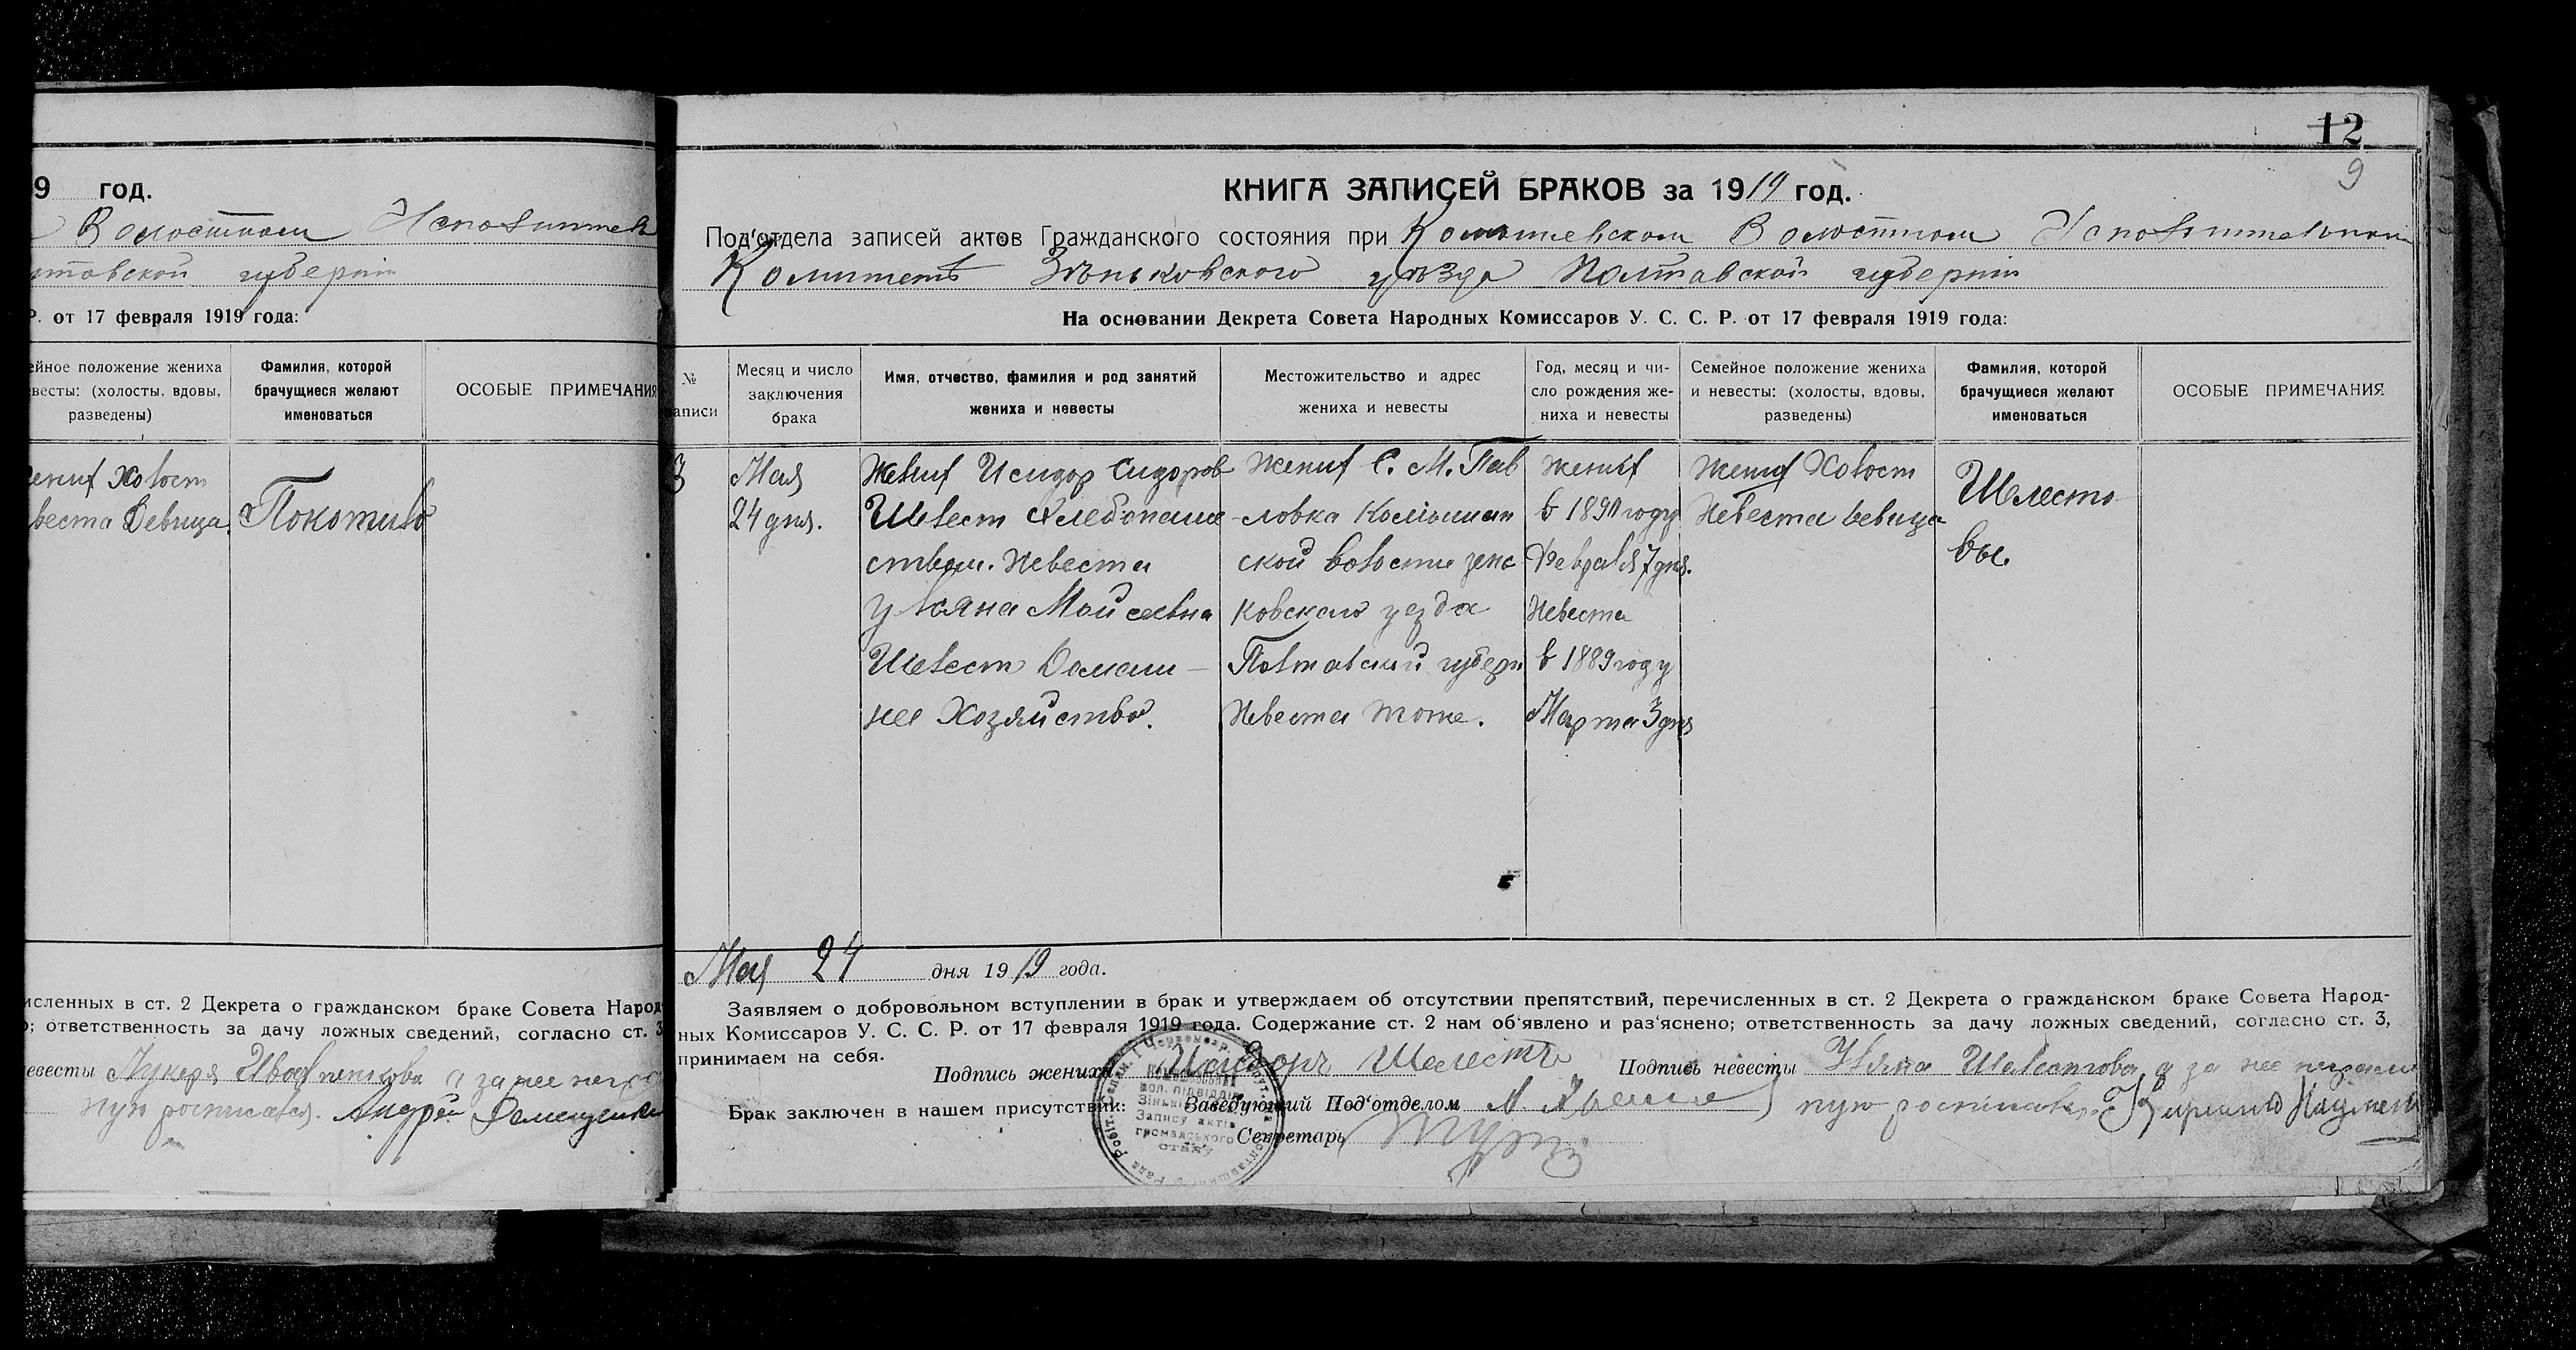 9 год.
Волостном Исполнител
лтавской губернии
Р. от 17 февраля 1919 года:
ейное положение жениха
весты: (холосты, вдовы,
разведены)
Фамилия, которой
брачущиеся желают
именоваться
ОСОБЫЕ ПРИМЕЧАНИЯ
ених Холост
веста Девица.
Покотило
исленных в ст. 2 Декрета о гражданском браке Совета Народ-
о; ответственность за дачу ложных сведений, согласно ст. 3
евесты а за нее негра
ную росписался. Андрей
12
9
КНИГА ЗАПИСЕЙ БРАКОВ за 1919 год.
Под'отдела записей актов Гражданского состояния при Комышевском Волостном Исполнительном
Комитетѣ Зѣньковского уѣзда Полтавской губернии
На основании Декрета Совета Народных Комиссаров У. С. С. Р. от 17 февраля 1919 года:
№
аписи
Месяц и число
заключения
брака
Имя, отчество, фамилия и род занятий
жениха и невесты
Местожительство и адрес
жениха и невесты
Год, месяц и чи-
сло рождения же-
ниха и невесты
Семейное положение жениха
и невесты: (холосты, вдовы,
разведены)
Фамилия, которой
брачущиеся желают
именоваться
ОСОБЫЕ ПРИМЕЧАНИЯ
3
Мая
24 дня.
Жених Исидор Сидоров
Шелест Хлебопаше
ством. Невеста
Ульяна Мойсеевна
Шелест Домаш-
нее Хозяйство.
Жених С. М. Пав
-ловка Комышан
ской волости зень
ковского уезда
Полтавский губерн
Невеста тоже.
Жених
в 1890 году
Февраля 7 дня.
Невеста
в 1889 году
Марта 3 дня
Жених Холост
Невеста девица
Шелесто-
вы.
Мая 24 дня 1919 года.
Заявляем о добровольном вступлении в брак и утверждаем об отсутствии препятствий, перечисленных в ст. 2 Декрета о гражданском браке Совета Народ-
ных Комиссаров У. С. С. Р. от 17 февраля 1919 года. Содержание ст. 2 нам об'явлено и раз'яснено; ответственность за дачу ложных сведений, согласно ст. 3,
принимаем на себя.
Подпись жениха Исидоръ Шелестъ
Подпись невесты Уляна Шелестова а за нее неграмот
ную росписався
Брак заключен в нашем присутствии: Заведующий Под'отделом
Секретарь
вол. підвідділ
Запису актів
громадського
стану